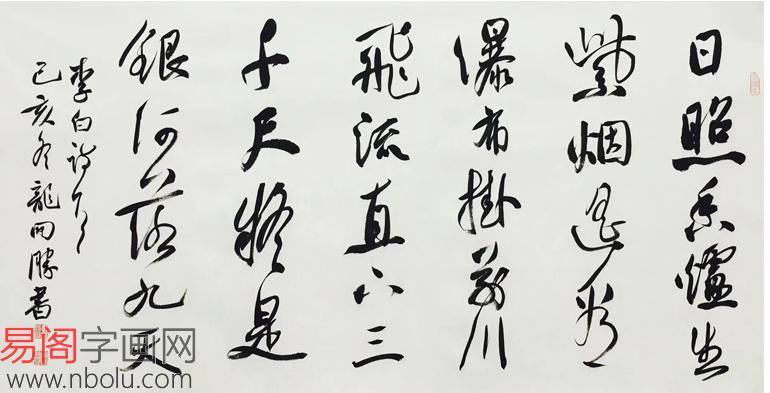 日照香爐生
紫烟遥看
瀑布掛前川
飛流直下三
千尺疑是
銀河落九天
李白詩
己亥冬龍開勝書
易阁字画网
www.nbolu.com